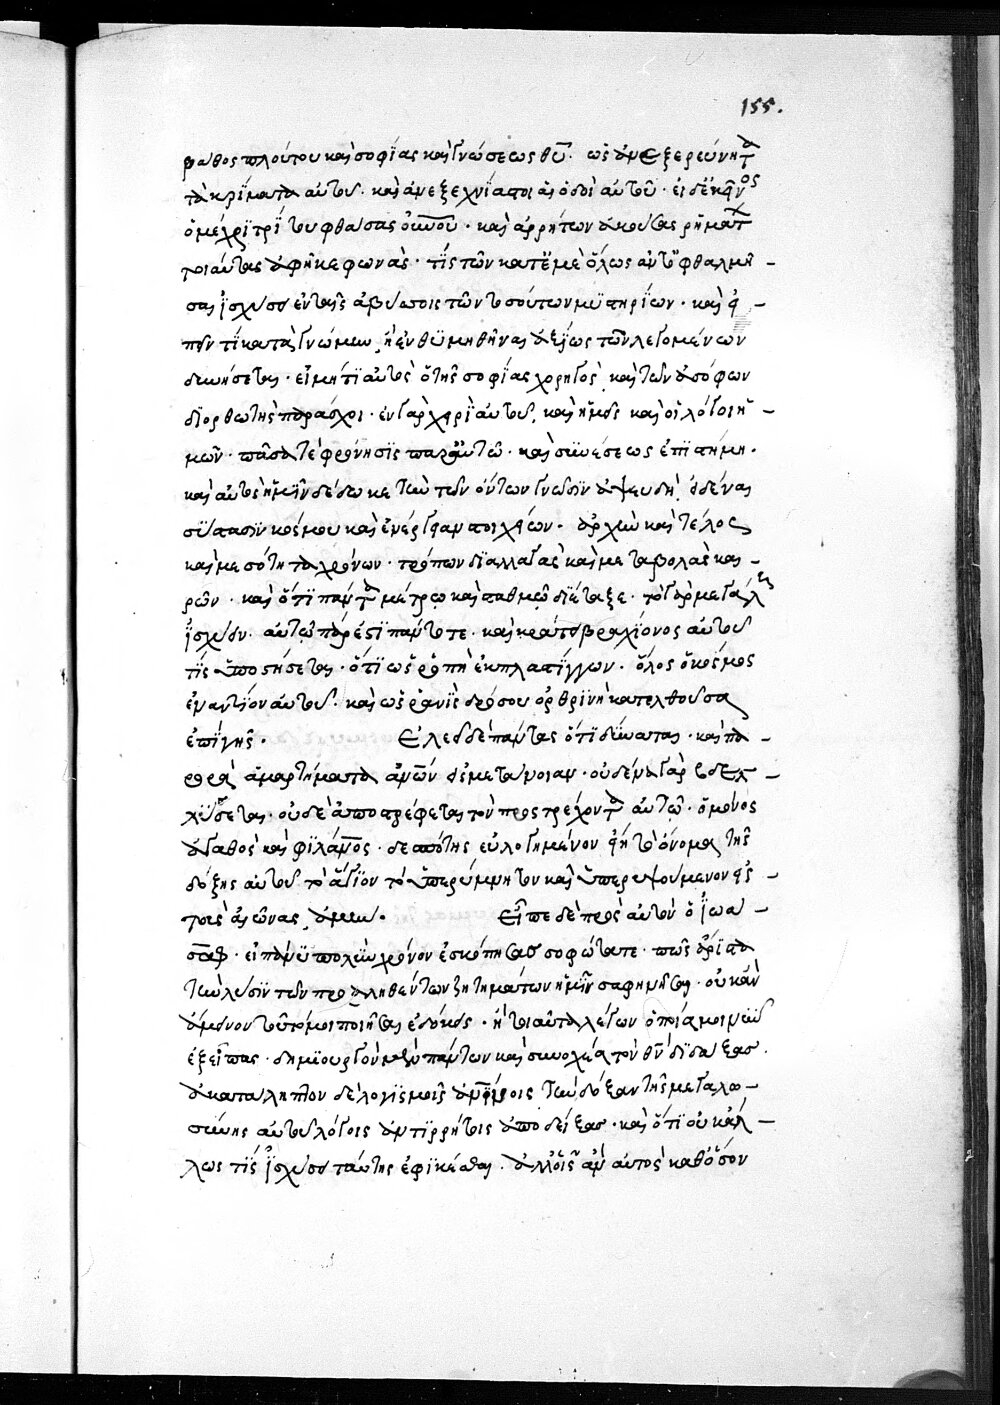 155.
βάθος πλούτου καὶ σοφίας καὶ γνώσεως θῦ· ὡς ἀνεξερεύνητα
τὰ κρίματα αὐτοῦ· καὶ ἀνεξιχνίαστοι αἱ ὁδοὶ αὐτοῦ· εἰ δὲ κἀκεῖνος
ὁ μέχρι τρίτου φθάσας οὐνοῦ· καὶ ἀρρήτων ἀκούσας ρημάτων
τοιαύτας ἀφῆκε φωνὰς· τίς τῶν κατ' ἐμὲ ὅλως ἀντοφθαλμῆ-
σαι ἰσχύσει ἐν ταῖς ἀβύσσοις τῶν τοσούτων μυστηρίων· καὶ εἰ-
πεῖν τί κατὰ γνώμην ἢ ἐνθυμηθῆναι ἀξίως τῶν λεγομένων
δυνήσεται· εἰ μή τι αὐτὸς ὁ τῆς σοφίας χορηγὸς καὶ τῶν ἀσόφων
διορθωτὴς παράσχοι· ἐν γὰρ χειρὶ αὐτοῦ, καὶ ἡμεῖς καὶ οἱ λόγοι ἡ-
μῶν· πᾶσά τε φρόνησις παρ' αὐτῶ· καὶ συνέσεως ἐπιστήμη·
καὶ αὐτὸς ἡμῖν δέδωκε τὴν τῶν ὄντων γνῶσιν ἀψευδῆ, εἰδέναι
σύστασιν κόσμου καὶ ἐνέργειαν στοιχείων· ἀρχὴν καὶ τέλος
καὶ μεσότητα χρόνων· τρόπων διαλλαγὰς καὶ μεταβολὰς και-
ρῶν· καὶ ὅτι πάντα μέτρω καὶ σταθμῶ διέταξε· τὸ γὰρ μεγάλως
ἰσχύειν αὐτῶ πάρεστι πάντοτε· καὶ κράτει βραχίονος αὐτοῦ
τίς ὑποστήσεται· ὅτι ὡς ῥοπὴ ἐκ πλαστίγγων· ὅλος ὁ κόσμος
ἐναντίον αὐτοῦ· καὶ ὡς ῥανὶς δρόσου ὀρθρινὴ κατελθοῦσα
ἐπὶ γῆς· Ἐλεεῖ δὲ πάντας ὅτι δύναται· καὶ πα-
ρορᾶ ἁμαρτήματα ἀνῶν εἰς μετάνοιαν· οὐδένα γὰρ βδελ-
λύσσεται· οὐδὲ ἀποστρέφεται τὸν προστρέχοντα αὐτῶ· ὁ μόνος
ἀγαθὸς καὶ φιλάνος· δεσπότης εὐλογημένον εἴη τὸ ὄνομα τῆς
δόξης αὐτοῦ τὸ ἅγιον τὸ ὑπερύμνητον καὶ ὑπερυψούμενον εἰς
τοὺς αἰῶνας, ἀμήν· Εἶπε δὲ πρὸς αὐτὸν ὁ ἰωά-
σαφ· εἰ πάνυ πολὺν χρόνον ἐσκόπησας σοφώτατε· πῶς ἄριστα
τὴν λύσιν τῶν προβληθέντων ζητημάτων ἡμῖν σαφηνίσαι· οὐκ ἂν
ἄμεινον τοῦτό μοι ποιῆσαι ἐδόκεις· ἢ τοιαῦτα λέγων ὁποῖά μοι νῦν
ἐξεῖπας· δημιουργὸν μὲν πάντων καὶ συνοχέα τὸν θν διδάξας·
ἀκατάληπτον δὲ λογισμοῖς ἀνθρωπίνοις τὴν δόξαν τῆς μεγαλω-
σύνης αὐτοῦ λόγοις ἀντιρρήτοις ἀποδείξας· καὶ ὅτι οὐκ ἄλ-
λως τίς ἰσχύσει ταύτης ἐφικέσθαι· ἀλλ' οἷς ἂν αὐτὸς καθόσον